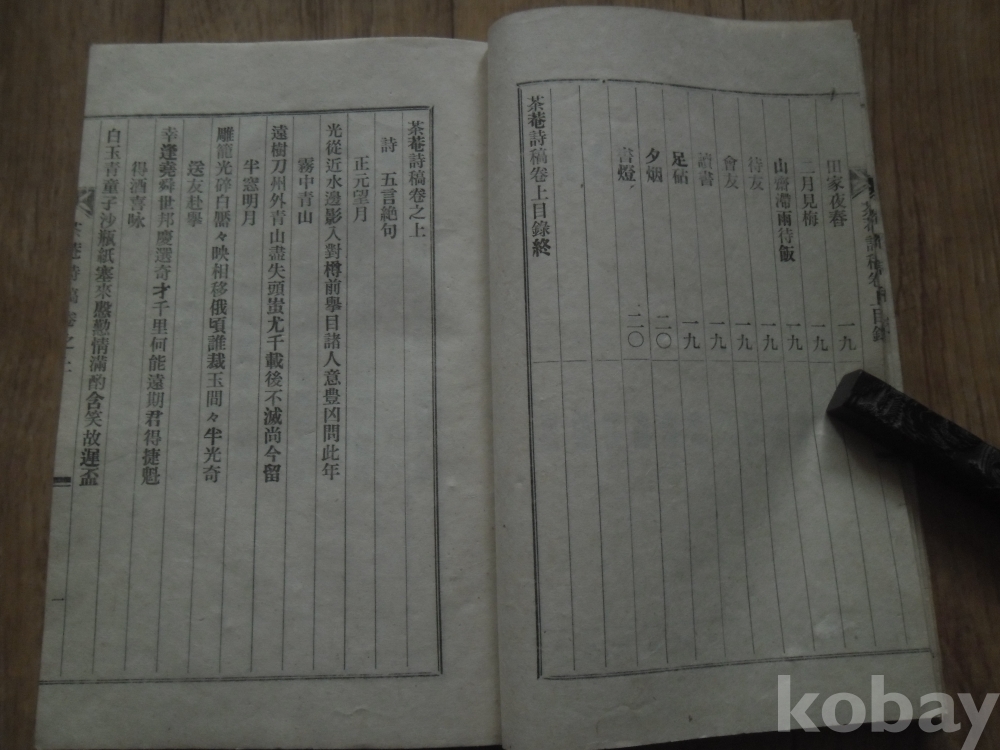 田家夜舂 一九
二月見梅 一九
山齋滯雨待飯 一九
待友 一九
會友 一九
讀書 一九
足砧 一九
夕烟 二〇
書燈 二〇
茶菴詩稿卷上目錄終
茶菴詩稿卷之上
詩 五言絶句
正元望月
光從近水邊影入對樽前擧目諸人意豊凶問此年
霧中青山
遠樹刀州外青山盡失頭蚩尤千載後不滅尚今留
半窓明月
雕籠光碎白鷳々映相移俄頃誰裁玉間々半光奇
送友赴擧
幸逢堯舜世邦慶選奇才千里何能遠期君得捷魁
得酒喜咏
白玉青童子沙瓶紙塞來慇懃情滿酌含笑故遲盃
茶菴詩稿 卷之上
一
kobay